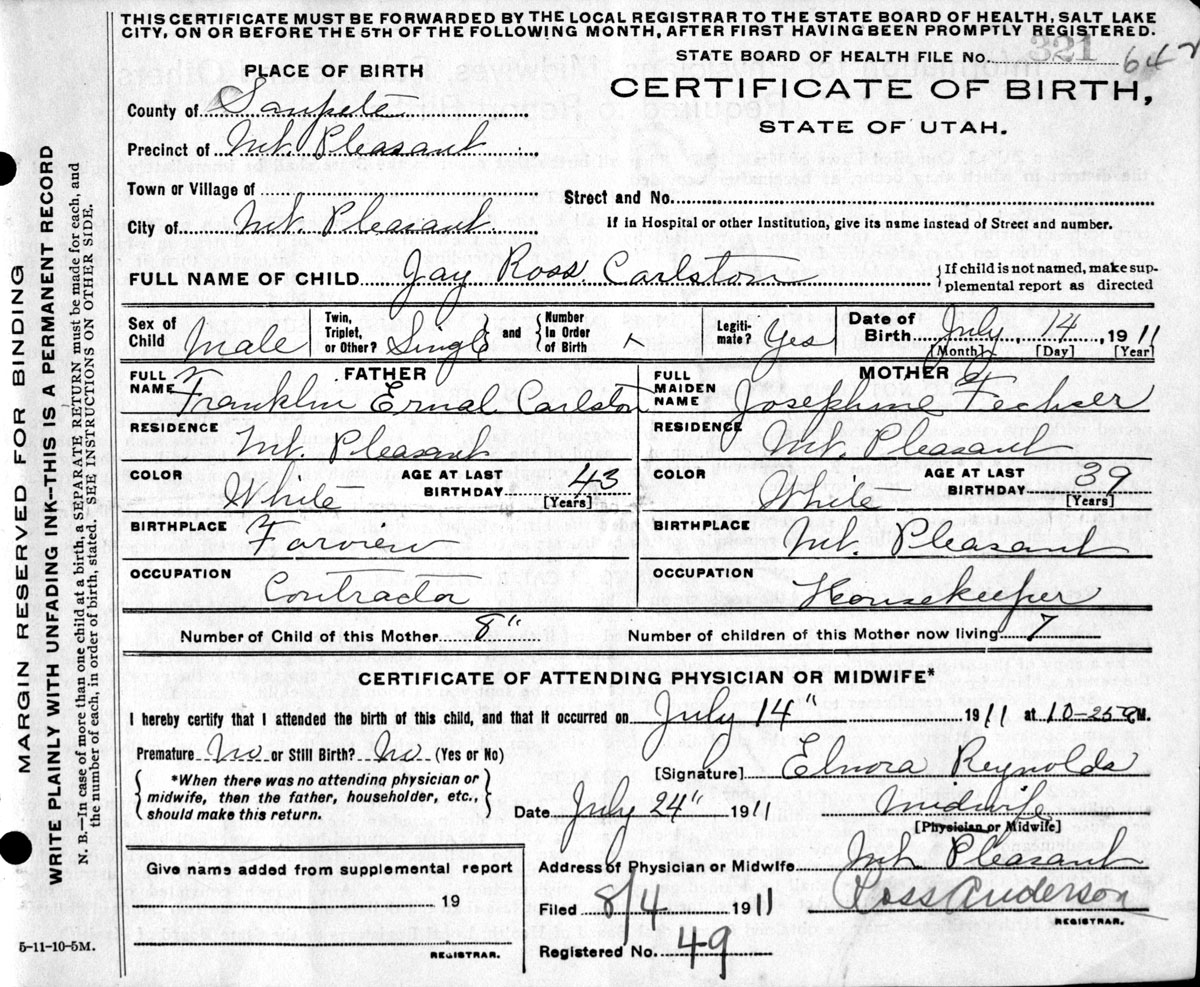 THIS CERTIFICATE MUST BE FORWARDED BY THE LOCAL REGISTRAR TO THE STATE BOARD OF HEALTH, SALT LAKE
CITY, ON OR BEFORE THE 5TH OF THE FOLLOWING MONTH, AFTER FIRST HAVING BEEN PROMPTLY REGISTERED.
STATE BOARD OF HEALTH FILE NO. 321 647
PLACE OF BIRTH
CERTIFICATE OF BIRTH,
STATE OF UTAH.
County of Sanpete
Precinct of Mt. Pleasant
Town or Village of
Street and No.
City of Mt. Pleasant
If in Hospital or other Institution, give its name instead of Street and number.
FULL NAME OF CHILD Jay Ross Carlston {If child is not named, make sup-
plemental report as directed
Sex of Child Male Twin, Triplet, or Other? Single and {Number In Order of Birth Legiti-mate? Yes Date of Birth July, 14, 1911
[Month] [Day] [Year]
FATHER
FULL NAME Franklin Ernal Carlston
RESIDENCE Mt. Pleasant
COLOR White AGE AT LAST BIRTHDAY 43 [Years]
BIRTHPLACE Farview
OCCUPATION Contractor
MOTHER
FULL MAIDEN NAME Josephine Fechser
RESIDENCE Mt. Pleasant
COLOR White AGE AT LAST BIRTHDAY 39 [Years]
BIRTHPLACE Mt. Pleasant
OCCUPATION Housekeeper
Number of Child of this Mother 8" Number of children of this Mother now living 7
CERTIFICATE OF ATTENDING PHYSICIAN OR MIDWIFE*
I hereby certify that I attended the birth of this child, and that it occurred on July 14" 1911 at 10-25 M.
Premature No or Still Birth? No (Yes or No)
{*When there was no attending physician or
midwife, then the father, householder, etc.,
should make this return.}
[Signature] Elnora Reynolds
Date July 24" 1911 Midwife
[Physician or Midwife]
Address of Physician or Midwife Mt Pleasant
Give name added from supplemental report
19
REGISTRAR.
Filed 8/4 1911 Ross Anderson
REGISTRAR.
Registered No. 49
5-11-10-5M.
MARGIN RESERVED FOR BINDING
WRITE PLAINLY WITH UNFADING INK-THIS IS A PERMANENT RECORD
N. B.—In case of more than one child at a birth, a SEPARATE RETURN must be made for each, and
the number of each, in order of birth, stated. SEE INSTRUCTIONS ON OTHER SIDE.